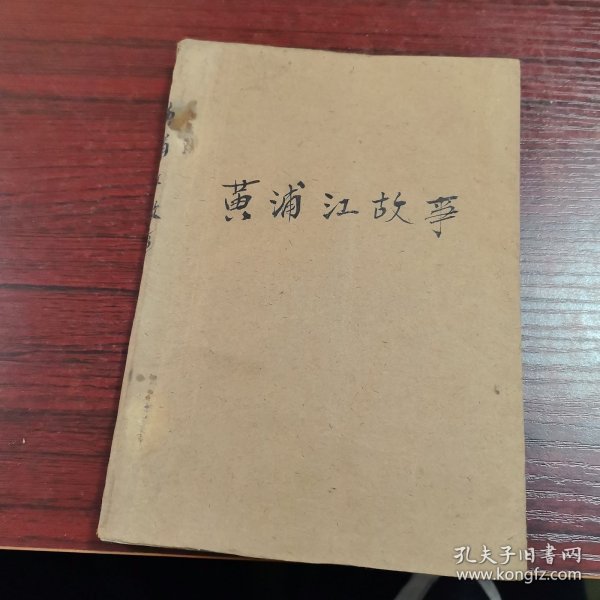 黄浦江故事
孔夫子旧书网
www.kongfz.com